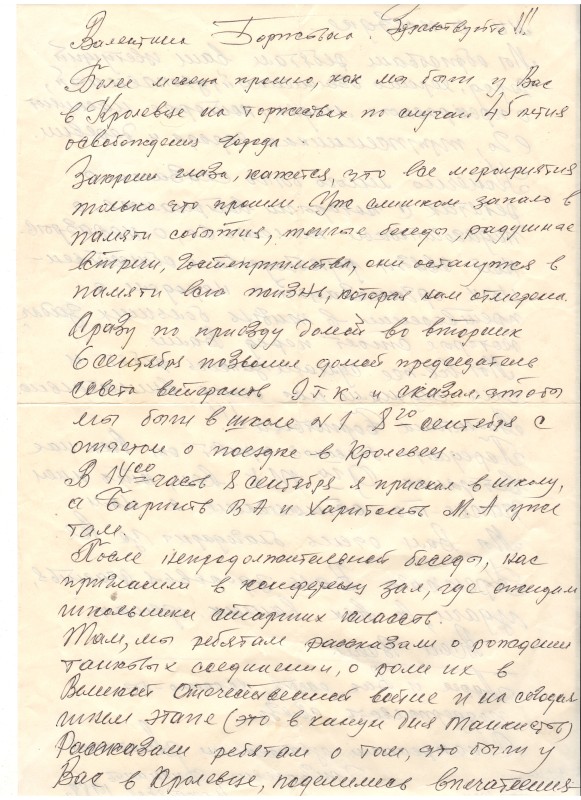 Валентина Борисовна. Здравствуйте!!!
Более месяца прошло, как мы были у Вас
в Кролевце на торжествах по случаю 45 летия
освобождения города
Закроеш глаза, кажется, что все мероприятия
только что прошли. Уж слишком запало в
памяти события, теплые беседы, радушные
встречи, гостеприимства, они останутся в
памяти всю жизнь, которая нам отмерена.
Сразу по приезду домой во вторник
6 сентября позвонил домой председатель
совета ветеранов 9 т к и сказал, чтобы
мы были в школе №1 8го сентября с
отчетом о поездке в Кролевец
В 14 00 часть 8 сентября я приехал в школу,
а В А и Харитонов М. А уже
там.
После непродолжительной беседы, нас
пригласили в конференц зал, где ожидали
школьники старших классов.
Там, мы ребятам рассказали о рождении
танковых соединений, о роли их в
Великой Отечественной войне и на сегодня
шнем этапе (это в канун дня танкистов)
Рассказали ребятам о том, что были у
Вас в Кролевце, поделились впечатления